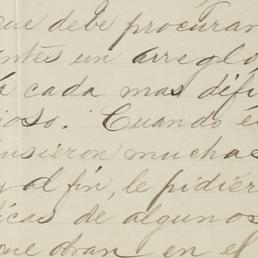 que debe procurar
antes un arreglo
á cada mas difi
ioso. Cuando é
usieron muchas
y al fin, le pidier
icas de algunos
que obran en el